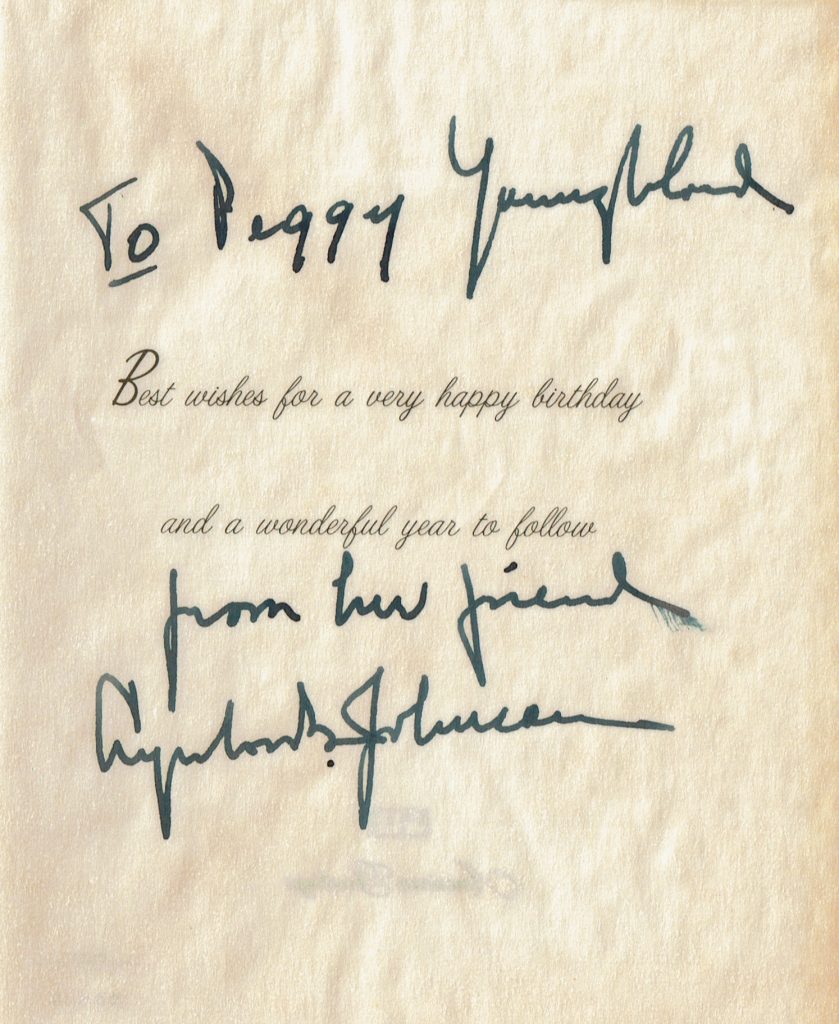 To Peggy Youngblood
Best wishes for a very happy birthday
and a wonderful year to follow
from her friend
Lyndon B. Johnson